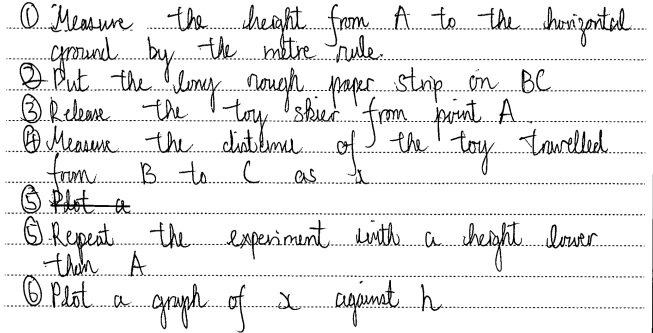 ① Measure the height from A to the horizontal
ground by the metre rule.
② Put the long rough paper strip on BC
③ Release the toy skier from point A.
④ Measure the distance of the toy travelled
from B to C as x
⑤ Plot a
⑤ Repeat the experiment with a height lower
than A
⑥ Plot a graph of x against h